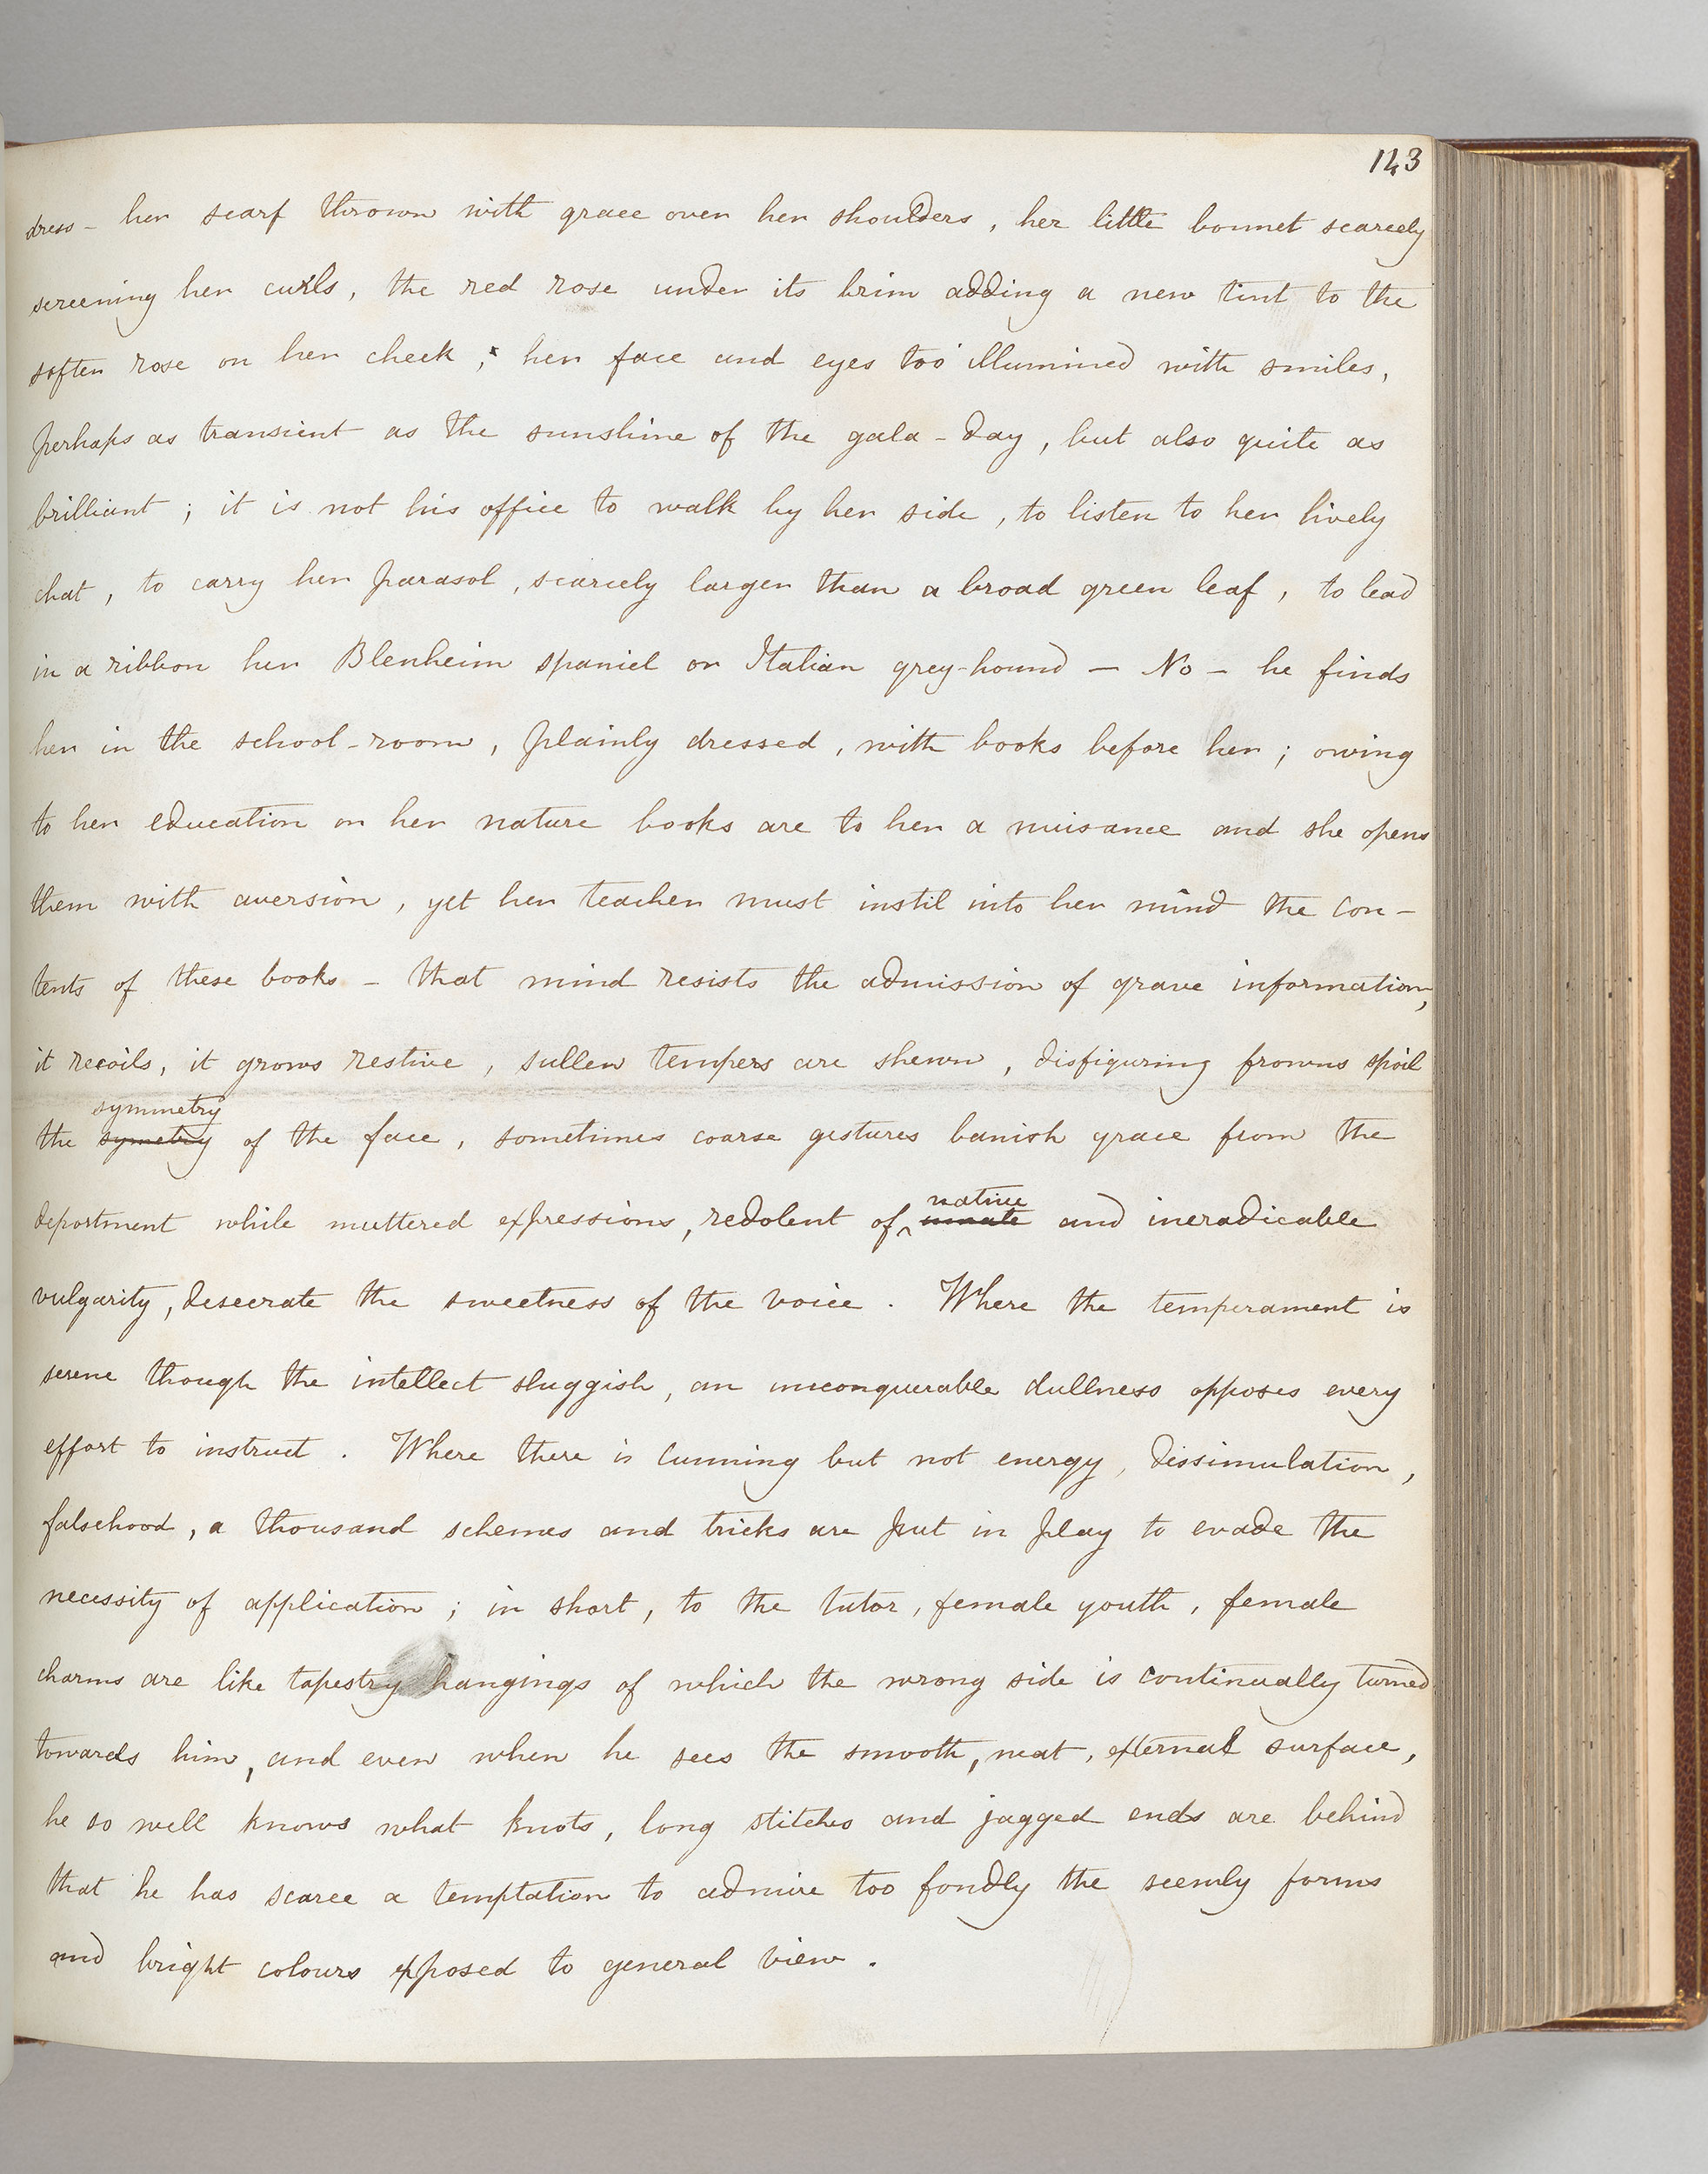 143
dress - her scarf thrown with grace over her shoulders, her little bonnet scarcely
screening her curls, the red rose under its brim adding a new tint to the
softer rose on her cheek; her face and eyes too illumined with smiles,
perhaps as transient as the sunshine of the gala-day, but also quite as
brilliant; it is not his office to walk by her side, to listen to her lively
chat, to carry her parasol, scarcely larger than a broad green leaf, to lead
in a ribbon her Blenheim spaniel or Italian grey-hound — No — he finds
her in the school-room, plainly dressed, with books before her; owing
to her education or her nature books are to her a nuisance and she opens
them with aversion, yet her teacher must instil into her mind the con-
tents of these books - that mind resists the admission of grave information,
it recoils, it grows restive, sullen tempers are shewn, disfiguring frowns spoil
symmetry
the symetry of the face, sometimes coarse gestures banish grace from the
native
deportment while muttered expressions, redolent of innate and ineradicable
vulgarity, desecrate the sweetness of the voice. Where the temperament is
serene though the intellect sluggish, an unconquerable dullness opposes every
effort to instruct. Where there is cunning but not energy, dissimulation,
falsehood, a thousand schemes and tricks are put in play to evade the
necessity of application; in short, to the tutor, female youth, female
charms are like tapestry hangings of which the wrong side is continually turned
towards him, and even when he sees the smooth, neat, external surface,
he so well knows what knots, long stitches and jagged ends are behind
that he has scarce a temptation to admire too fondly the seemly forms
and bright colours exposed to general view.